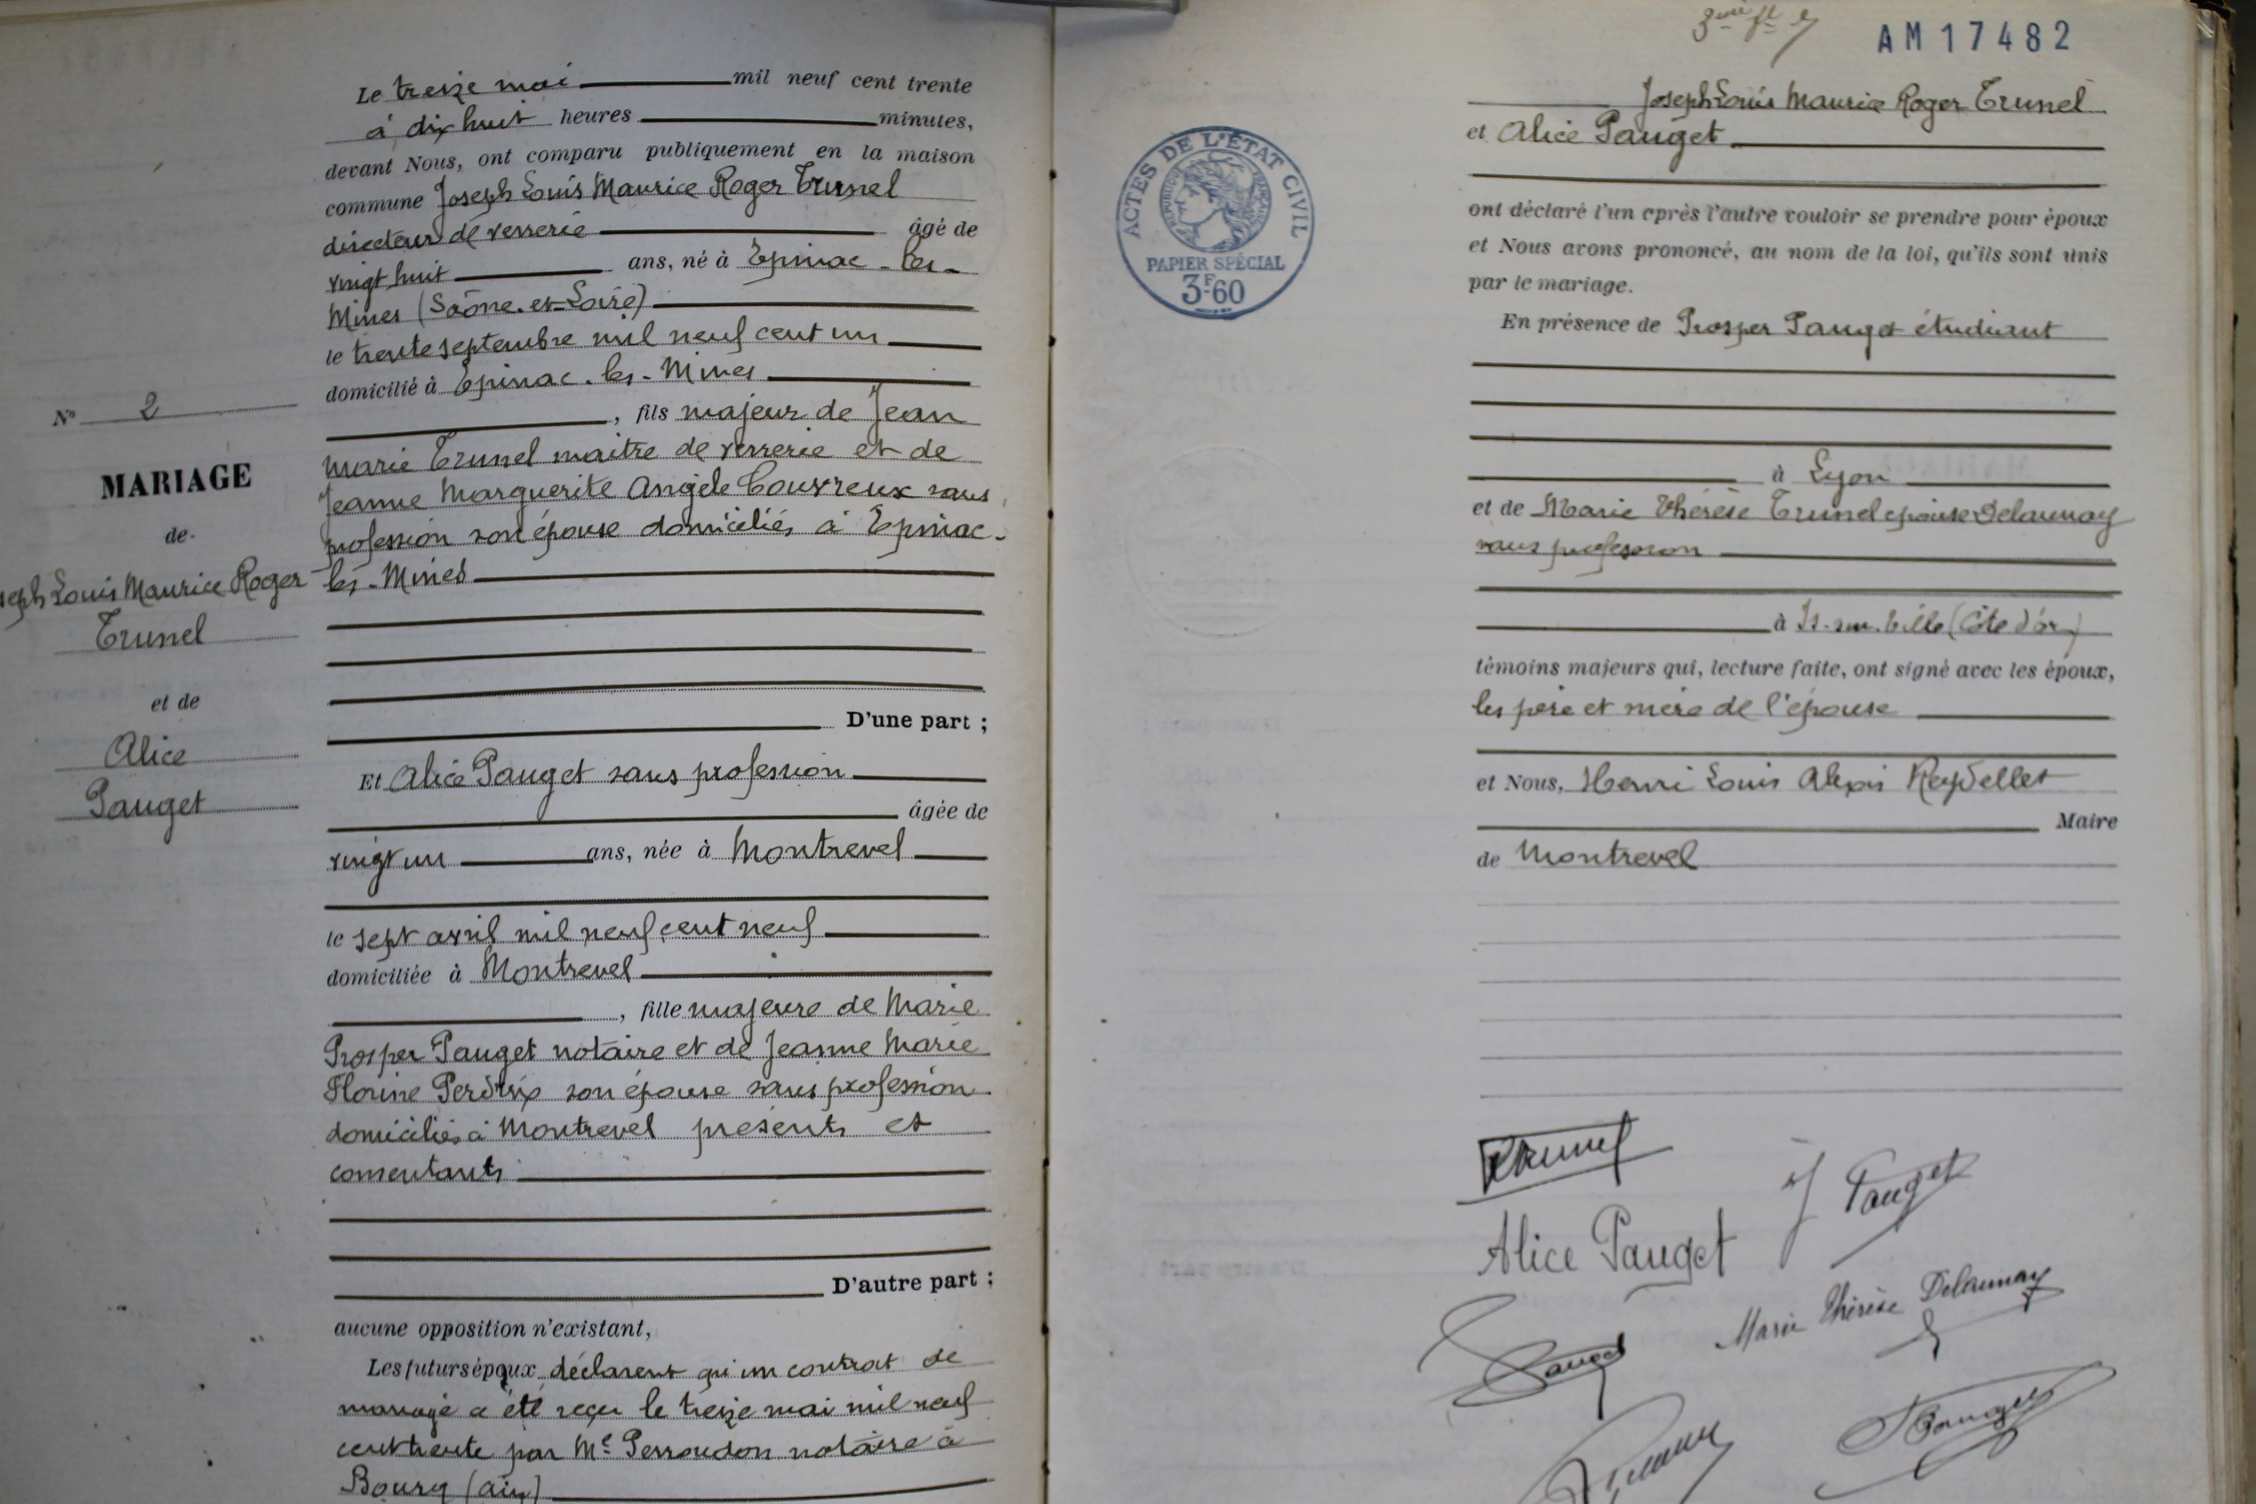 Le treize mai mil neuf cent trente
à dix huit heures minutes,
devant Nous, ont comparu publiquement en la maison
commune Joseph Louis Maurice Roger Trunel
directeur de verrerie âgé de
vingt huit ans, né à Epinac-les-
Mines (Saône-et-Loire)
le trente septembre mil neuf cent un
domicilié à Epinac-les-Mines
, fils majeur de Jean
Marie Trunel maître de verrerie et de
Jeanne Marguerite Angèle Couvreux sans
profession son épouse domiciliés à Epinac-
les-Mines
D'une part ;
Et Alice Pauget sans profession
âgée de
vingt un ans, née à Montrevel
le sept avril mil neuf cent neuf
domiciliée à Montrevel
, fille majeure de Marie
Prosper Pauget notaire et de Jeanne Marie
Florine Perdrix son épouse sans profession
domiciliés à Montrevel présents et
consentants
D'autre part ;
aucune opposition n'existant,
Les futurs époux déclarent qu'un contrat de
mariage a été reçu le treize mai mil neuf
cent trente par Me Perroudon notaire à
Bourg (Ain)
No 2
MARIAGE
de
Joseph Louis Maurice Roger
Trunel
et de
Alice
Pauget
AM17482
Joseph Louis Maurice Roger Trunel
et Alice Pauget
ont déclaré l'un après l'autre vouloir se prendre pour époux
et Nous avons prononcé, au nom de la loi, qu'ils sont unis
par le mariage.
En présence de Prosper Pauget étudiant
à Lyon
et de Marie Thérèse Trunel épouse Delaunay
sans profession
à Is-sur-Tille (Côte d'or)
témoins majeurs qui, lecture faite, ont signé avec les époux,
les père et mère de l'épouse
et Nous, Henri Louis Alexis Reydellet
Maire
de Montrevel
ACTES DE L'ÉTAT CIVIL
RÉPUBLIQUE FRANÇAISE
PAPIER SPÉCIAL
3F-60
Trunel
J Pauget
Alice Pauget
Marie Thérèse Delaunay
Pauget
Pauget